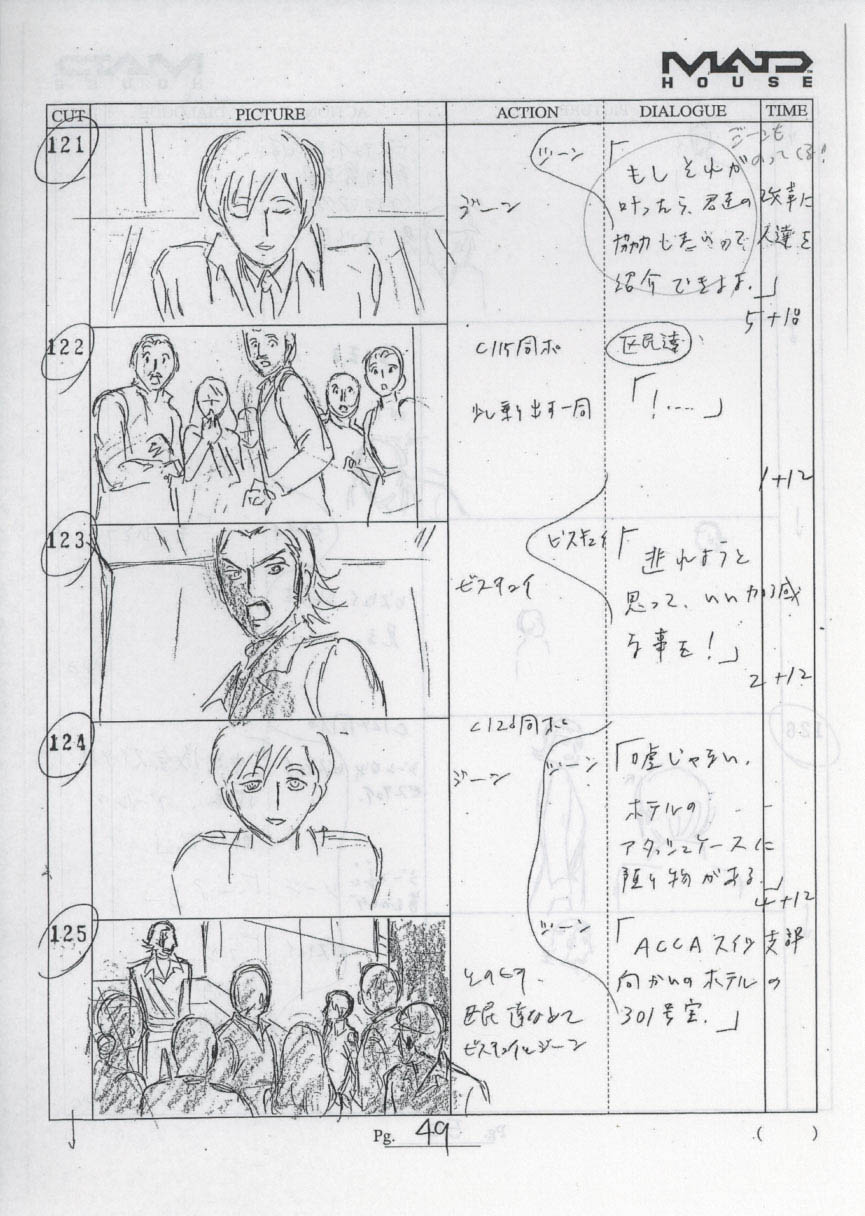 MADHOUSE
CUT PICTURE ACTION DIALOGUE TIME
121
ジーン
ジーン
ジーンも
のってくる!
「もしそれが
叶ったら、君達の改革に
協力したいので 人達を
紹介できます。」
5+18
122
C115同ポ
少し乗り出す一同
区民達
「!‥‥」
1+12
123
ビスキュイ
ビスキュイ
「逃れようと
思って、いい加減
な事を!」
2+12
124
同ポ
ジーン
ジーン
「嘘じゃない。
ホテルの
アタッシュケースに
預り物がある。」
4+12
125
区民達なめて
ビスキュイとジーン
ジーン
「ACCAスイツ支部
向かいのホテルの
301号室。」
Pg. 49
( )